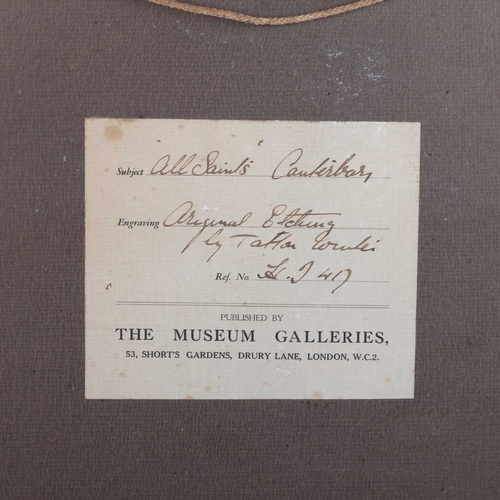 Subject "All Saint's" Canterbury
Engraving Original Etching
by Tatton
Ref. No.
PUBLISHED BY
THE MUSEUM GALLERIES,
53, SHORT'S GARDENS, DRURY LANE, LONDON, W.C.2.